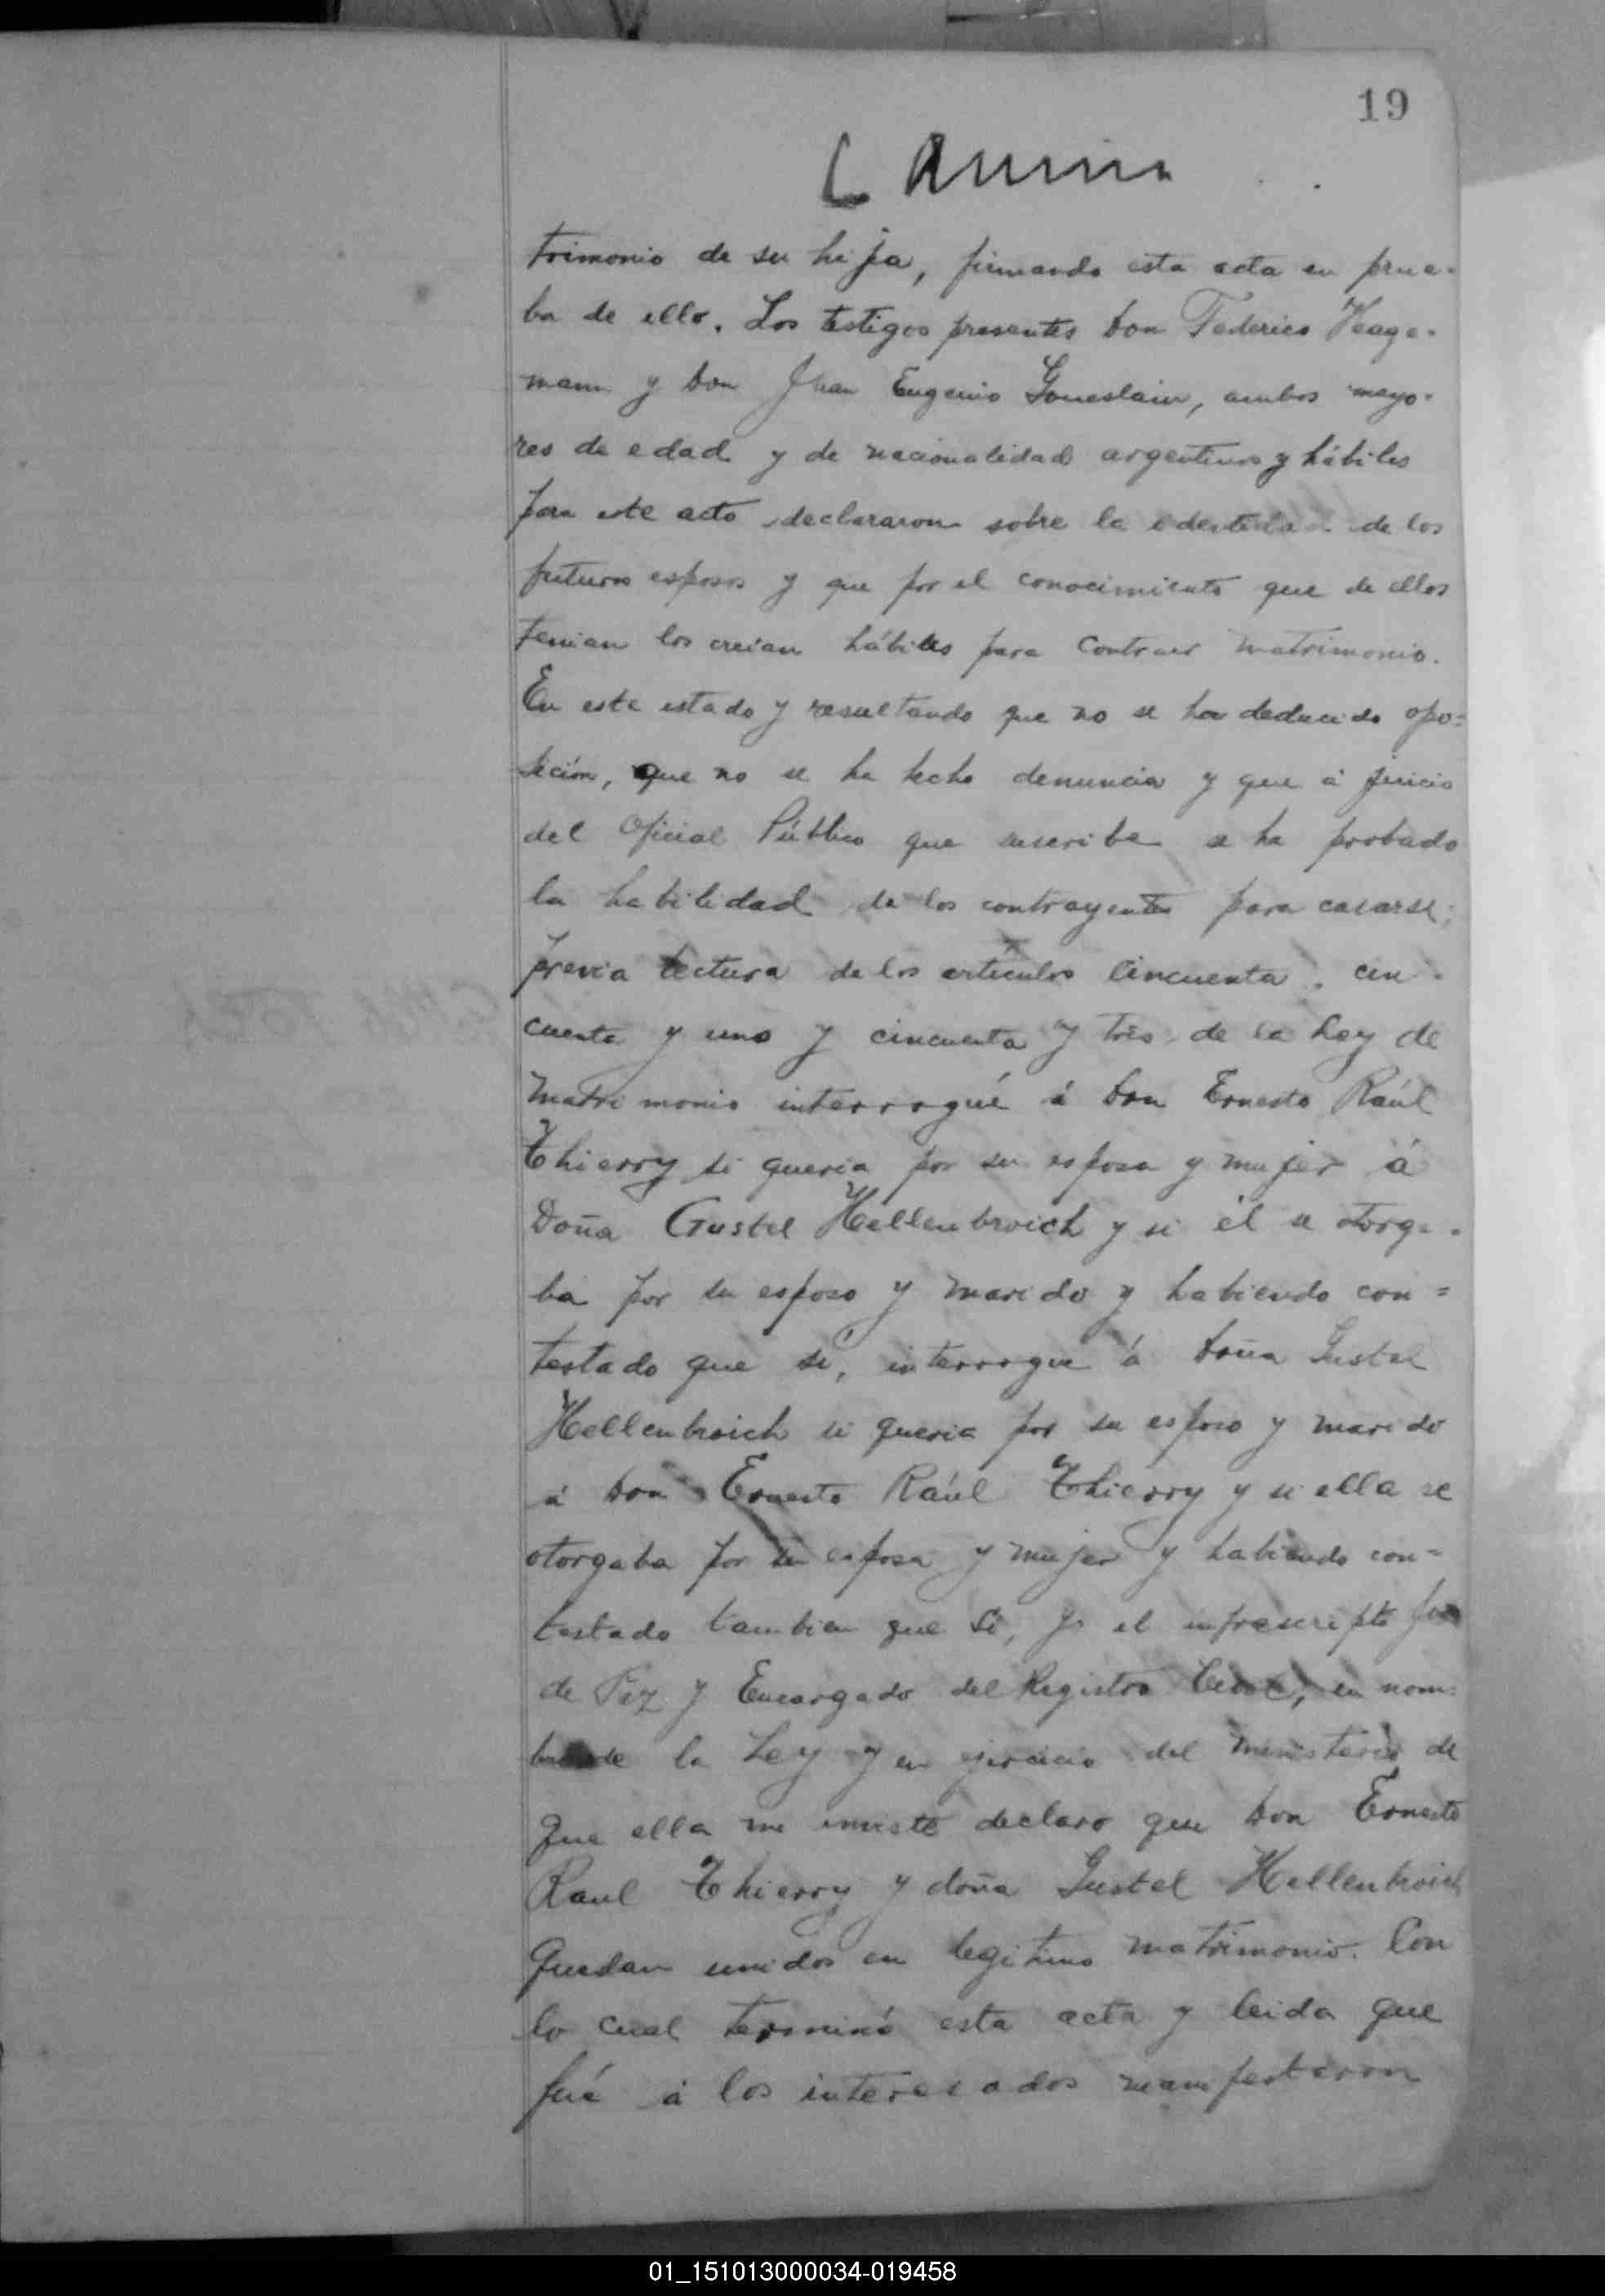 19
trimonio de su hija, firmando esta acta en prue-
ba de ello. Los testigos presentes Don Federico Heage-
mann y Don Juan Eugenio Goueslain, ambos mayo-
res de edad y de nacionalidad argentinos y hábiles
para este acto declararon sobre la identidad de los
futuros esposos y que por el conocimiento que de ellos
tenian los creian hábiles para contraer matrimonio.
En este estado y resultando que no se ha deducido opo=
sición, que no se ha hecho denuncia y que á juicio
del Oficial Público que suscribe se ha probado
la habilidad de los contrayentes para casarse;
previa lectura de los articulos cincuenta, cin-
cuenta y uno y cincuenta y tres de la Ley de
Matrimonio interrogué á Don Ernesto Raúl
Thierry si queria por su esposa y mujer á
Doña Gustel Hellenbroich y si él se otorga-
ba por su esposo y marido y habiendo con=
testado que si, interrogue á Doña Gustel
Hellenbroich si queria por su esposo y marido
á Don Ernesto Raúl Thierry y si ella se
otorgaba por su esposa y mujer y habiendo con=
testado tambien que si, yo el infrascripto Juez
de Paz y Encargado del Registro Civil, en nom=
bre de la Ley y en ejercicio del ministerio de
que ella me inviste declaro que Don Ernesto
Raul Thierry y doña Gustel Hellenbroich
quedan unidos en legitimo matrimonio. Con
lo cual terminó esta acta y leida que
fué á los interesados manifestaron
01_151013000034-019458